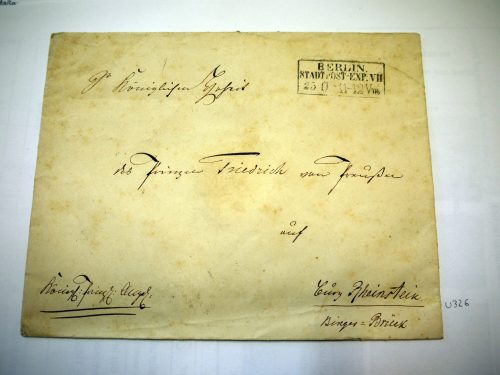 BERLIN.
STADTPOST-EXP. VII
11-12 Vm
Sr Königlichen Hoheit
des Prinzen Friedrich von Preußen
auf
Königl: Prinzl: Angel:
Burg Rheinstein
Binger-Brück
U326